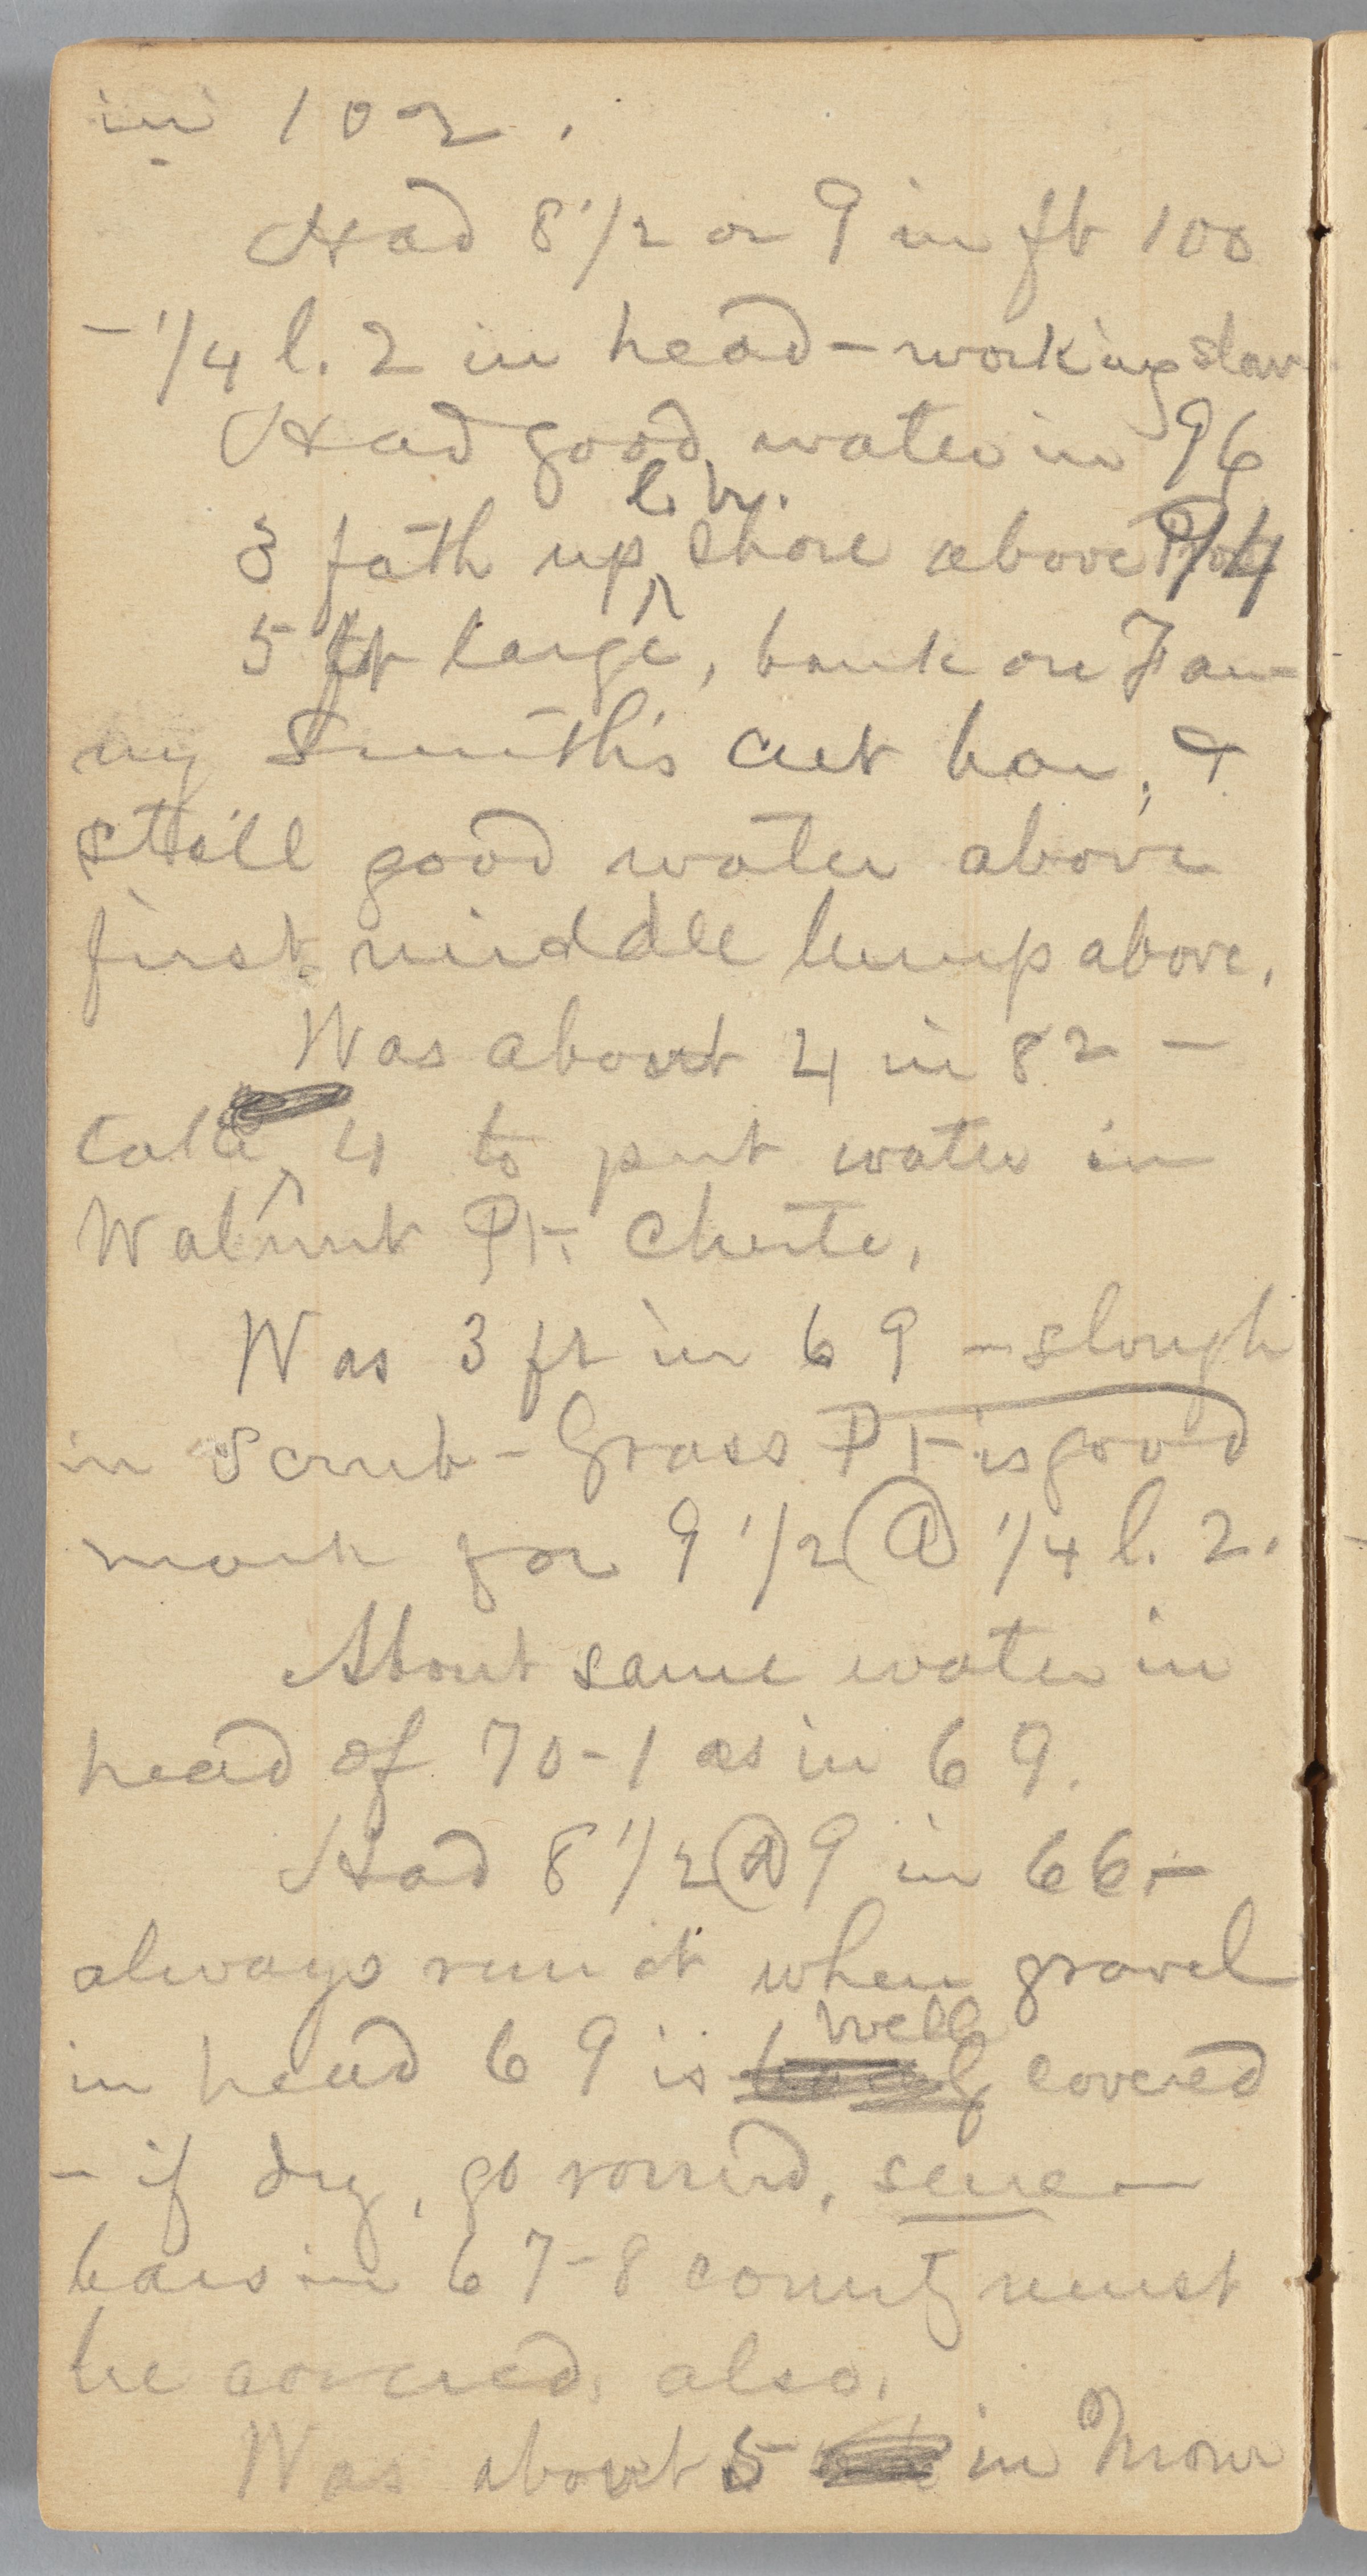 in 102.
Had 8 1/2 or 9 in ft 100
– 1/4 l. 2 in head – working slav
Had good water in 96
l. hr.
3 fath up shore above 94
5 ft large, bank on Fan-
ny Smith's cut bar, &
still good water above
first middle lump above.
Was about 4 in 82 –
take 4 to put water in
Walnut Pt. Chute.
Was 3 ft in 69 – slough
in Scrub-Grass Pt is good
mark for 9 1/2 @ 1/4 l. 2.
About same water in
head of 70-1 as in 69.
Had 8 1/2 @ 9 in 66 –
always run it when gravel
well
in head 69 is covered
– if dry, go round, sure –
bars in 67-8 must
be covered, also.
Was about 5 in Moun